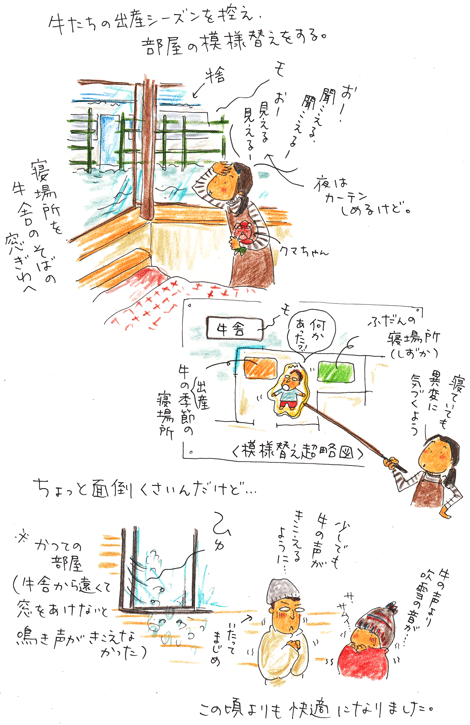 牛たちの出産シーズンを控え、
部屋の模様替えをする。
牛舎
モー
おー、
聞こえる、
聞こえるー
おー
見える
見えるー
夜は
カーテン
しめるけど。
クマちゃん
寝場所を
牛舎のそばの
窓ぎわへ
牛舎
モー
何か
あった?!
ふだんの
寝場所
(しずか)
出産
牛の季節の
寝場所
<模様替え超略図>
寝ていても
異変に
気づくよう
ちょっと面倒くさいんだけど…
※かつての
部屋
(牛舎から遠くて
窓をあけないと
鳴き声がきこえな
かった)
少しでも
牛の声が
きこえる
ように…
いたって
まじめ
牛の声より
吹雪の音が…
この頃よりも快適になりました。